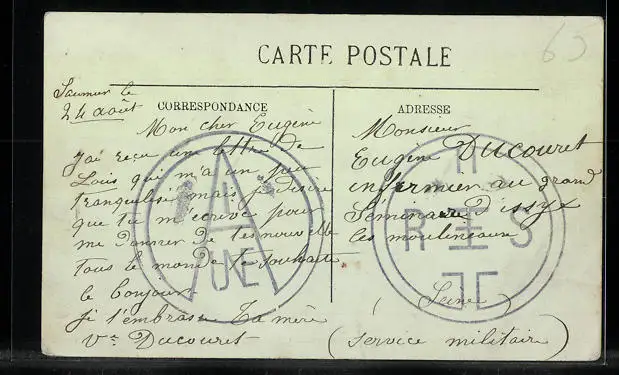 63
CARTE POSTALE
Saumur le
24 août
CORRESPONDANCE
Mon cher Eugène
J'ai reçu une lettre de
Louis qui m'a un peu
tranquilisé mais je désire
que tu m'écrive pour
me donner de tes nouvelle
tous le monde te souhaite
le bonjour
je t'embrasse Ta mère
Vve Ducouret
ADRESSE
Monsieur
Eugène Ducouret
infermier au grand
Séminaire D'issy
les moulineaux
(Seine)
(service militaire)
A
UNE
R S